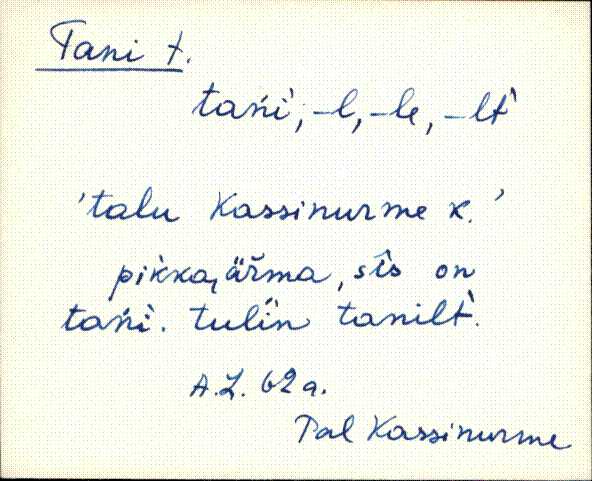 Tani t.
tańi, -l, -le, -lt
'talu Kassinurme k.'
pikka, ärma, sîs on
tańi. tulin tanilt.
A.L. 62 a.
Pal Kassinurme